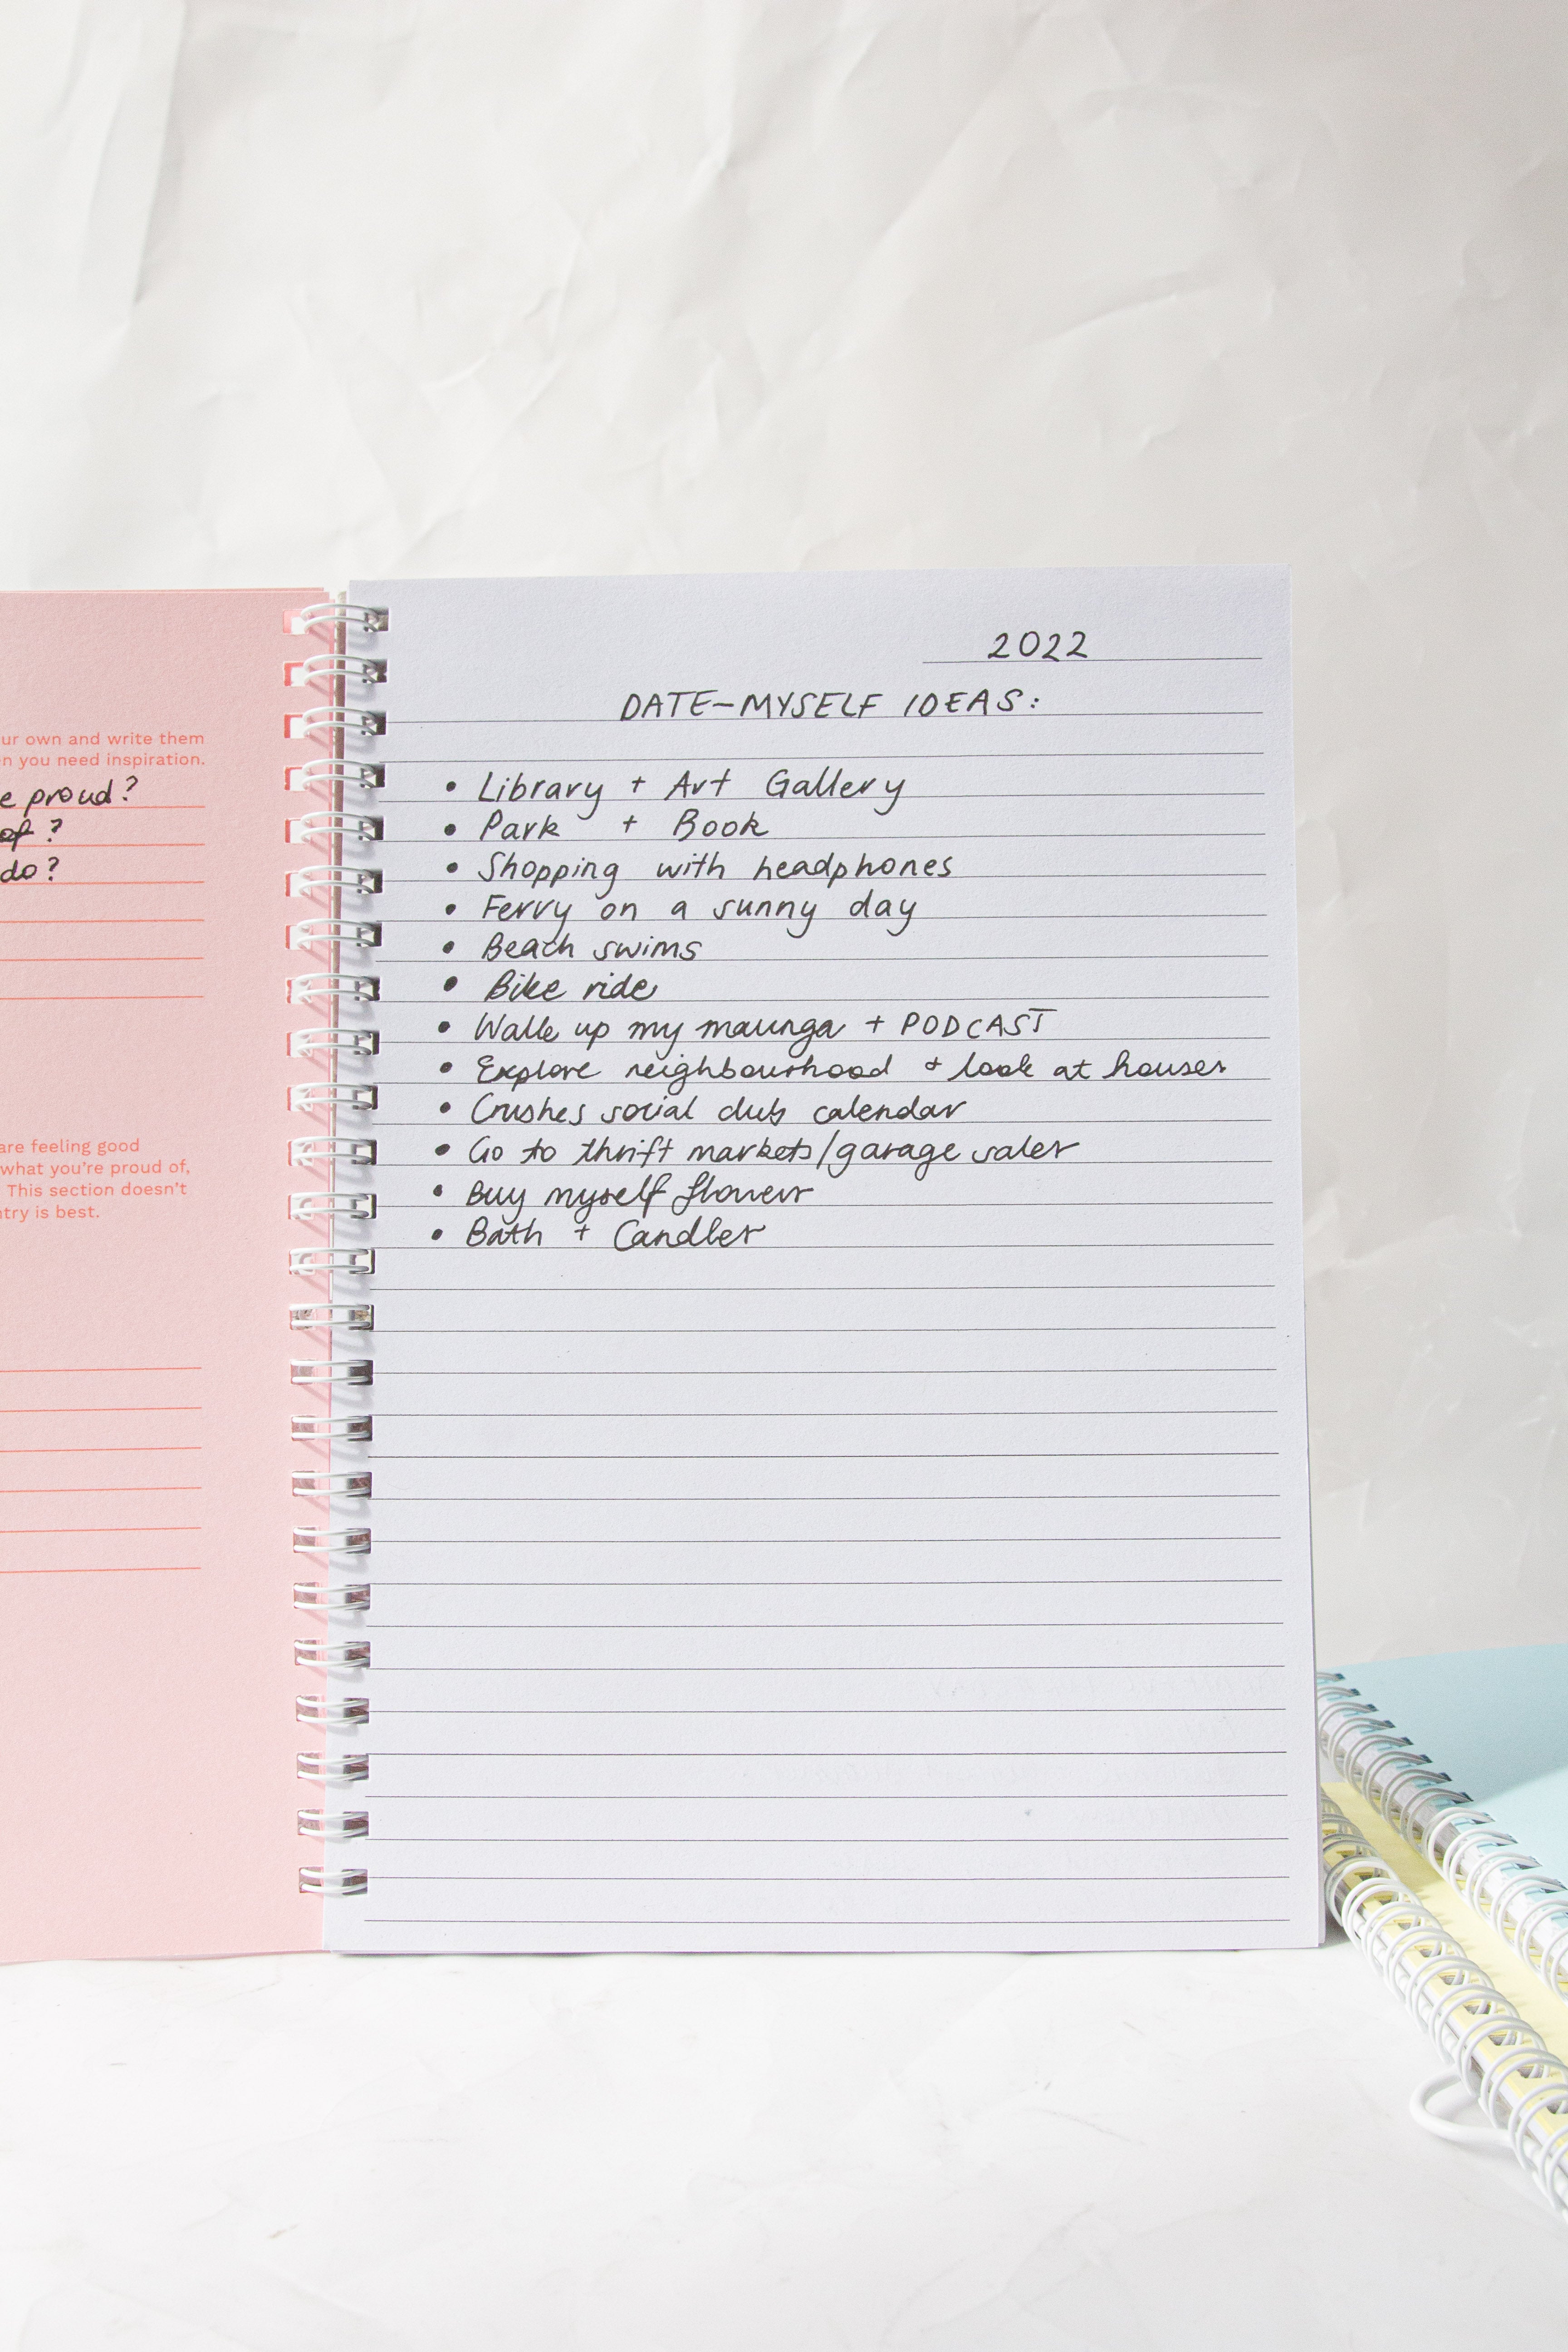 ur own and write them
n you need inspiration.
e proud?
of?
do?
are feeling good
what you're proud of,
This section doesn't
ntry is best.
2022
DATE-MYSELF IDEAS:
• Library + Art Gallery
• Park + Book
• Shopping with headphones
• Ferry on a sunny day
• Beach swims
• Bike ride
• Walk up my maunga + PODCAST
• Explore neighbourhood + look at houses
• Crushes social club calendar
• Go to thrift markets/garage sales
• Buy myself flowers
• Bath + Candles